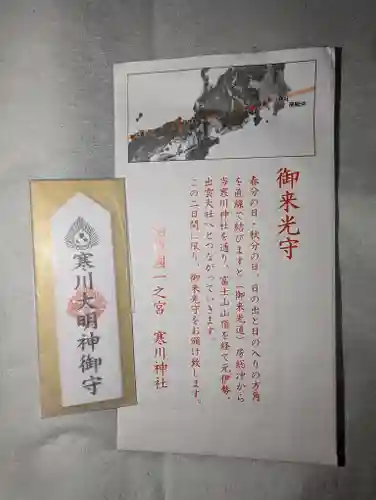 御来光守
春分の日・秋分の日、日の出と日の入りの方角
を直線で結びますと（御来光道）房総沖から
当寒川神社を通り、富士山山頂を経て元伊勢、
出雲大社へとつながっていきます。
この二日間に限り、御来光守をお頒け致します。
国一之宮　寒川神社
寒川大明神御守